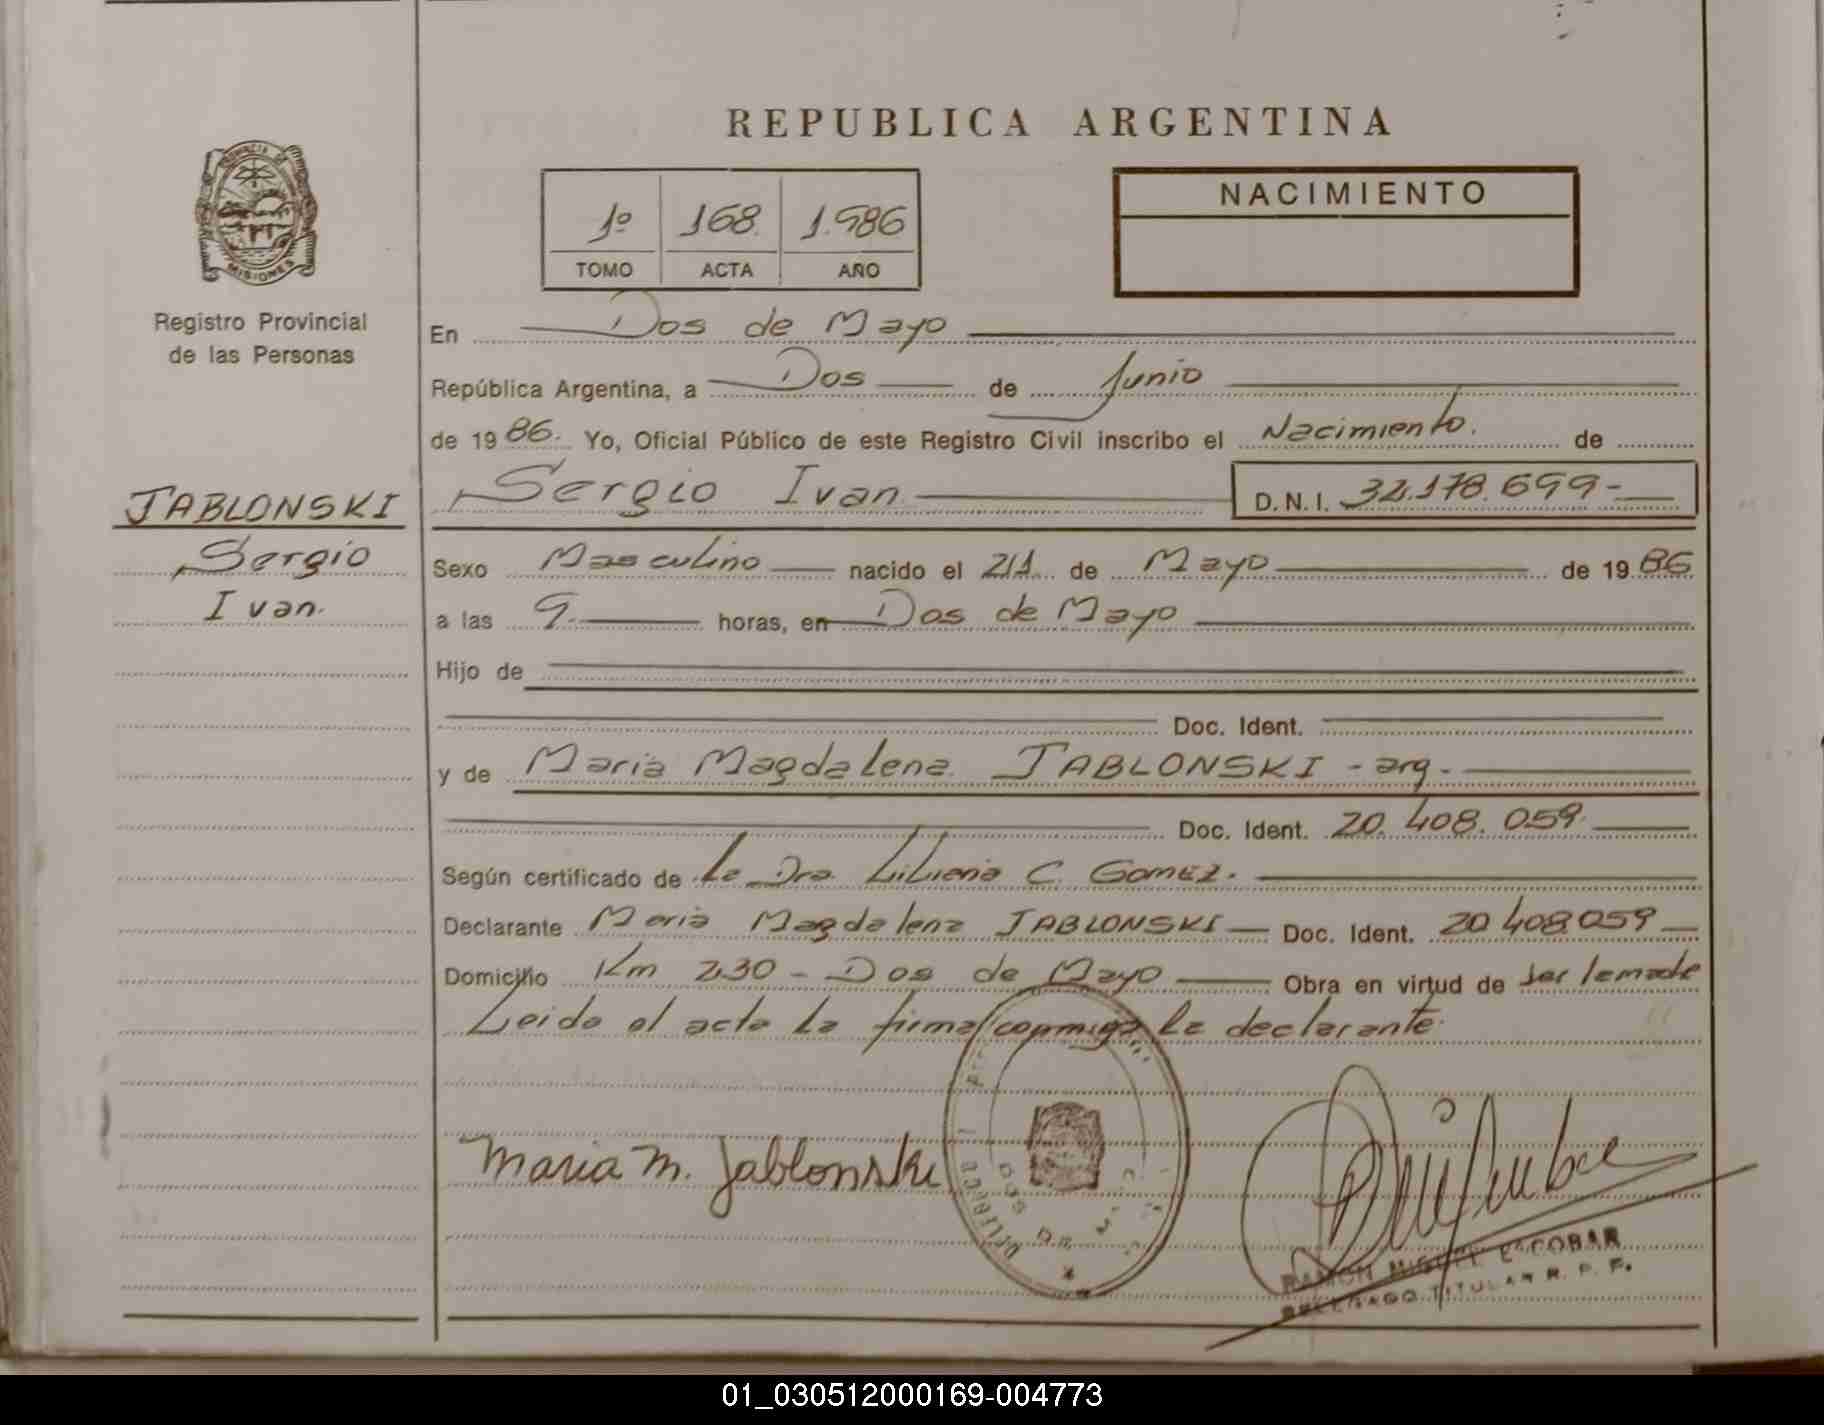 REPUBLICA ARGENTINA
PROVINCIA DE
MISIONES
Registro Provincial
de las Personas
1º 168. 1.986
TOMO ACTA AÑO
NACIMIENTO
En Dos de Mayo
República Argentina, a Dos de Junio
de 19 86. Yo, Oficial Público de este Registro Civil inscribo el Nacimiento. de
JABLONSKI
Sergio
Ivan.
Sergio Ivan D.N.I. 32.178.699-
Sexo Masculino nacido el 21 de Mayo de 19 86
a las 9. horas, en Dos de Mayo
Hijo de
Doc. Ident.
y de Maria Magdalena JABLONSKI - arg.-
Doc. Ident. 20.408.059.
Según certificado de La Dra. Liliana C. Gomez.
Declarante Maria Magdalena JABLONSKI Doc. Ident. 20 408.059
Domicilio Km 230 - Dos de Mayo Obra en virtud de ser la madre
Leida el acta la firma conmigo la declarante.
Maria M. Jablonski
RAMON MIGUEL ESCOBAR
DELEGADO TITULAR R. P. P.
01_030512000169-004773